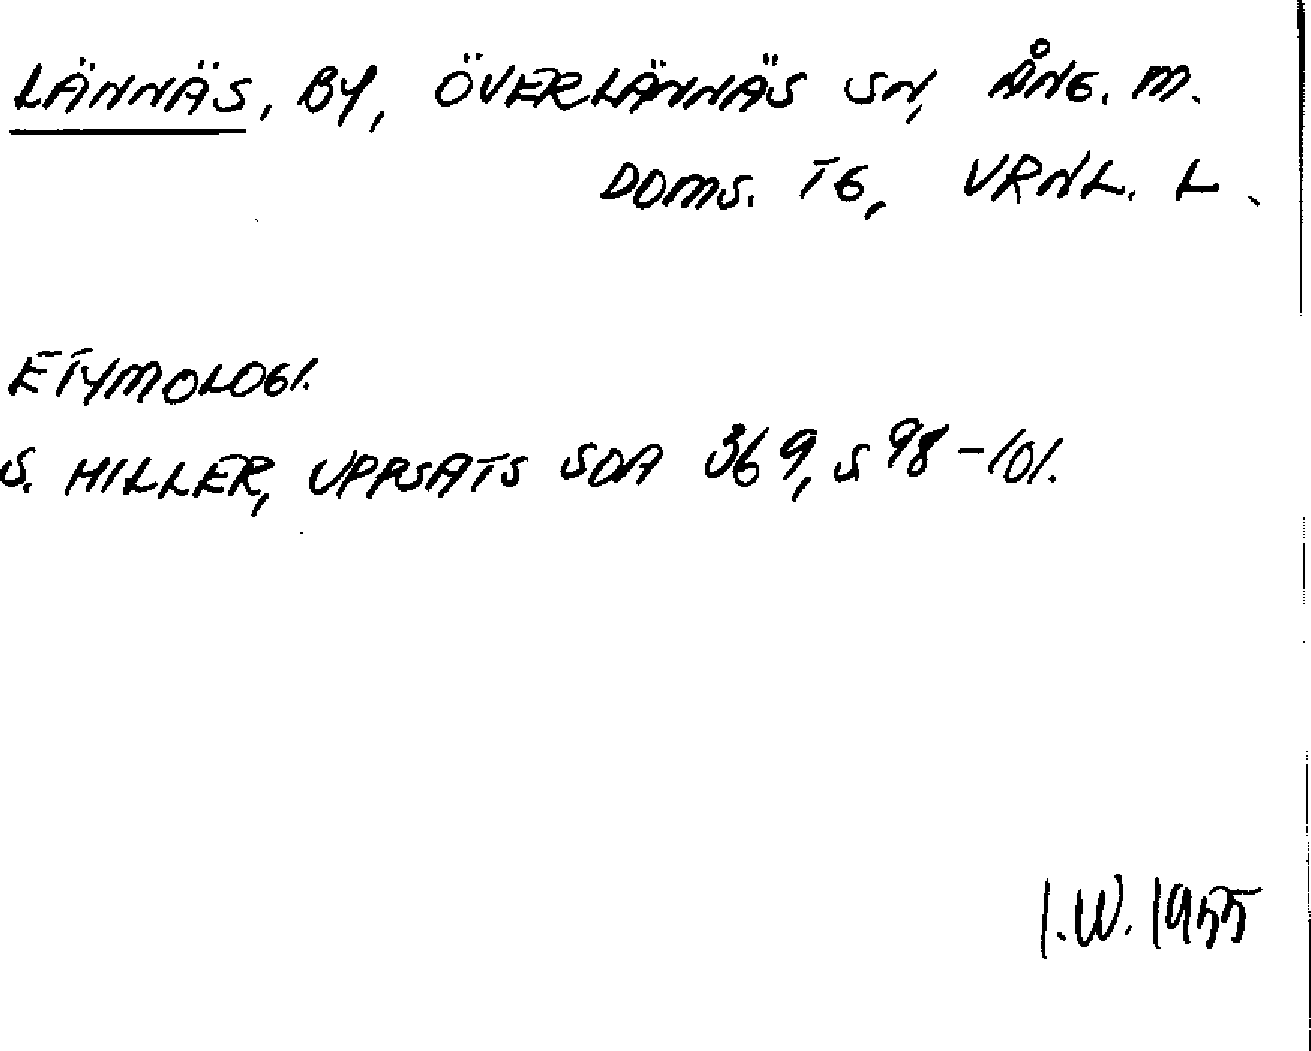 LÄNNÄS, BY, ÖVERLÄNNÄS SN, ÅNG. M.
DOMS. TG, VRNL. L.
ETYMOLOGI.
S. HILLER, UPPSATS SOA 369, S 98-101.
I.W. 1955